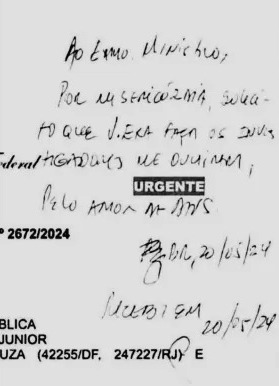 Ao Exmo. Ministro,
Por misericórdia, solici-
to que V.Exa faça os inves
ederal tigadores me ouvirem,
URGENTE
Pelo amor de Deus.
º 2672/2024
BR, 20/05/24
Recebi em
20/05/24
BLICA
JUNIOR
UZA (42255/DF, 247227/RJ) E